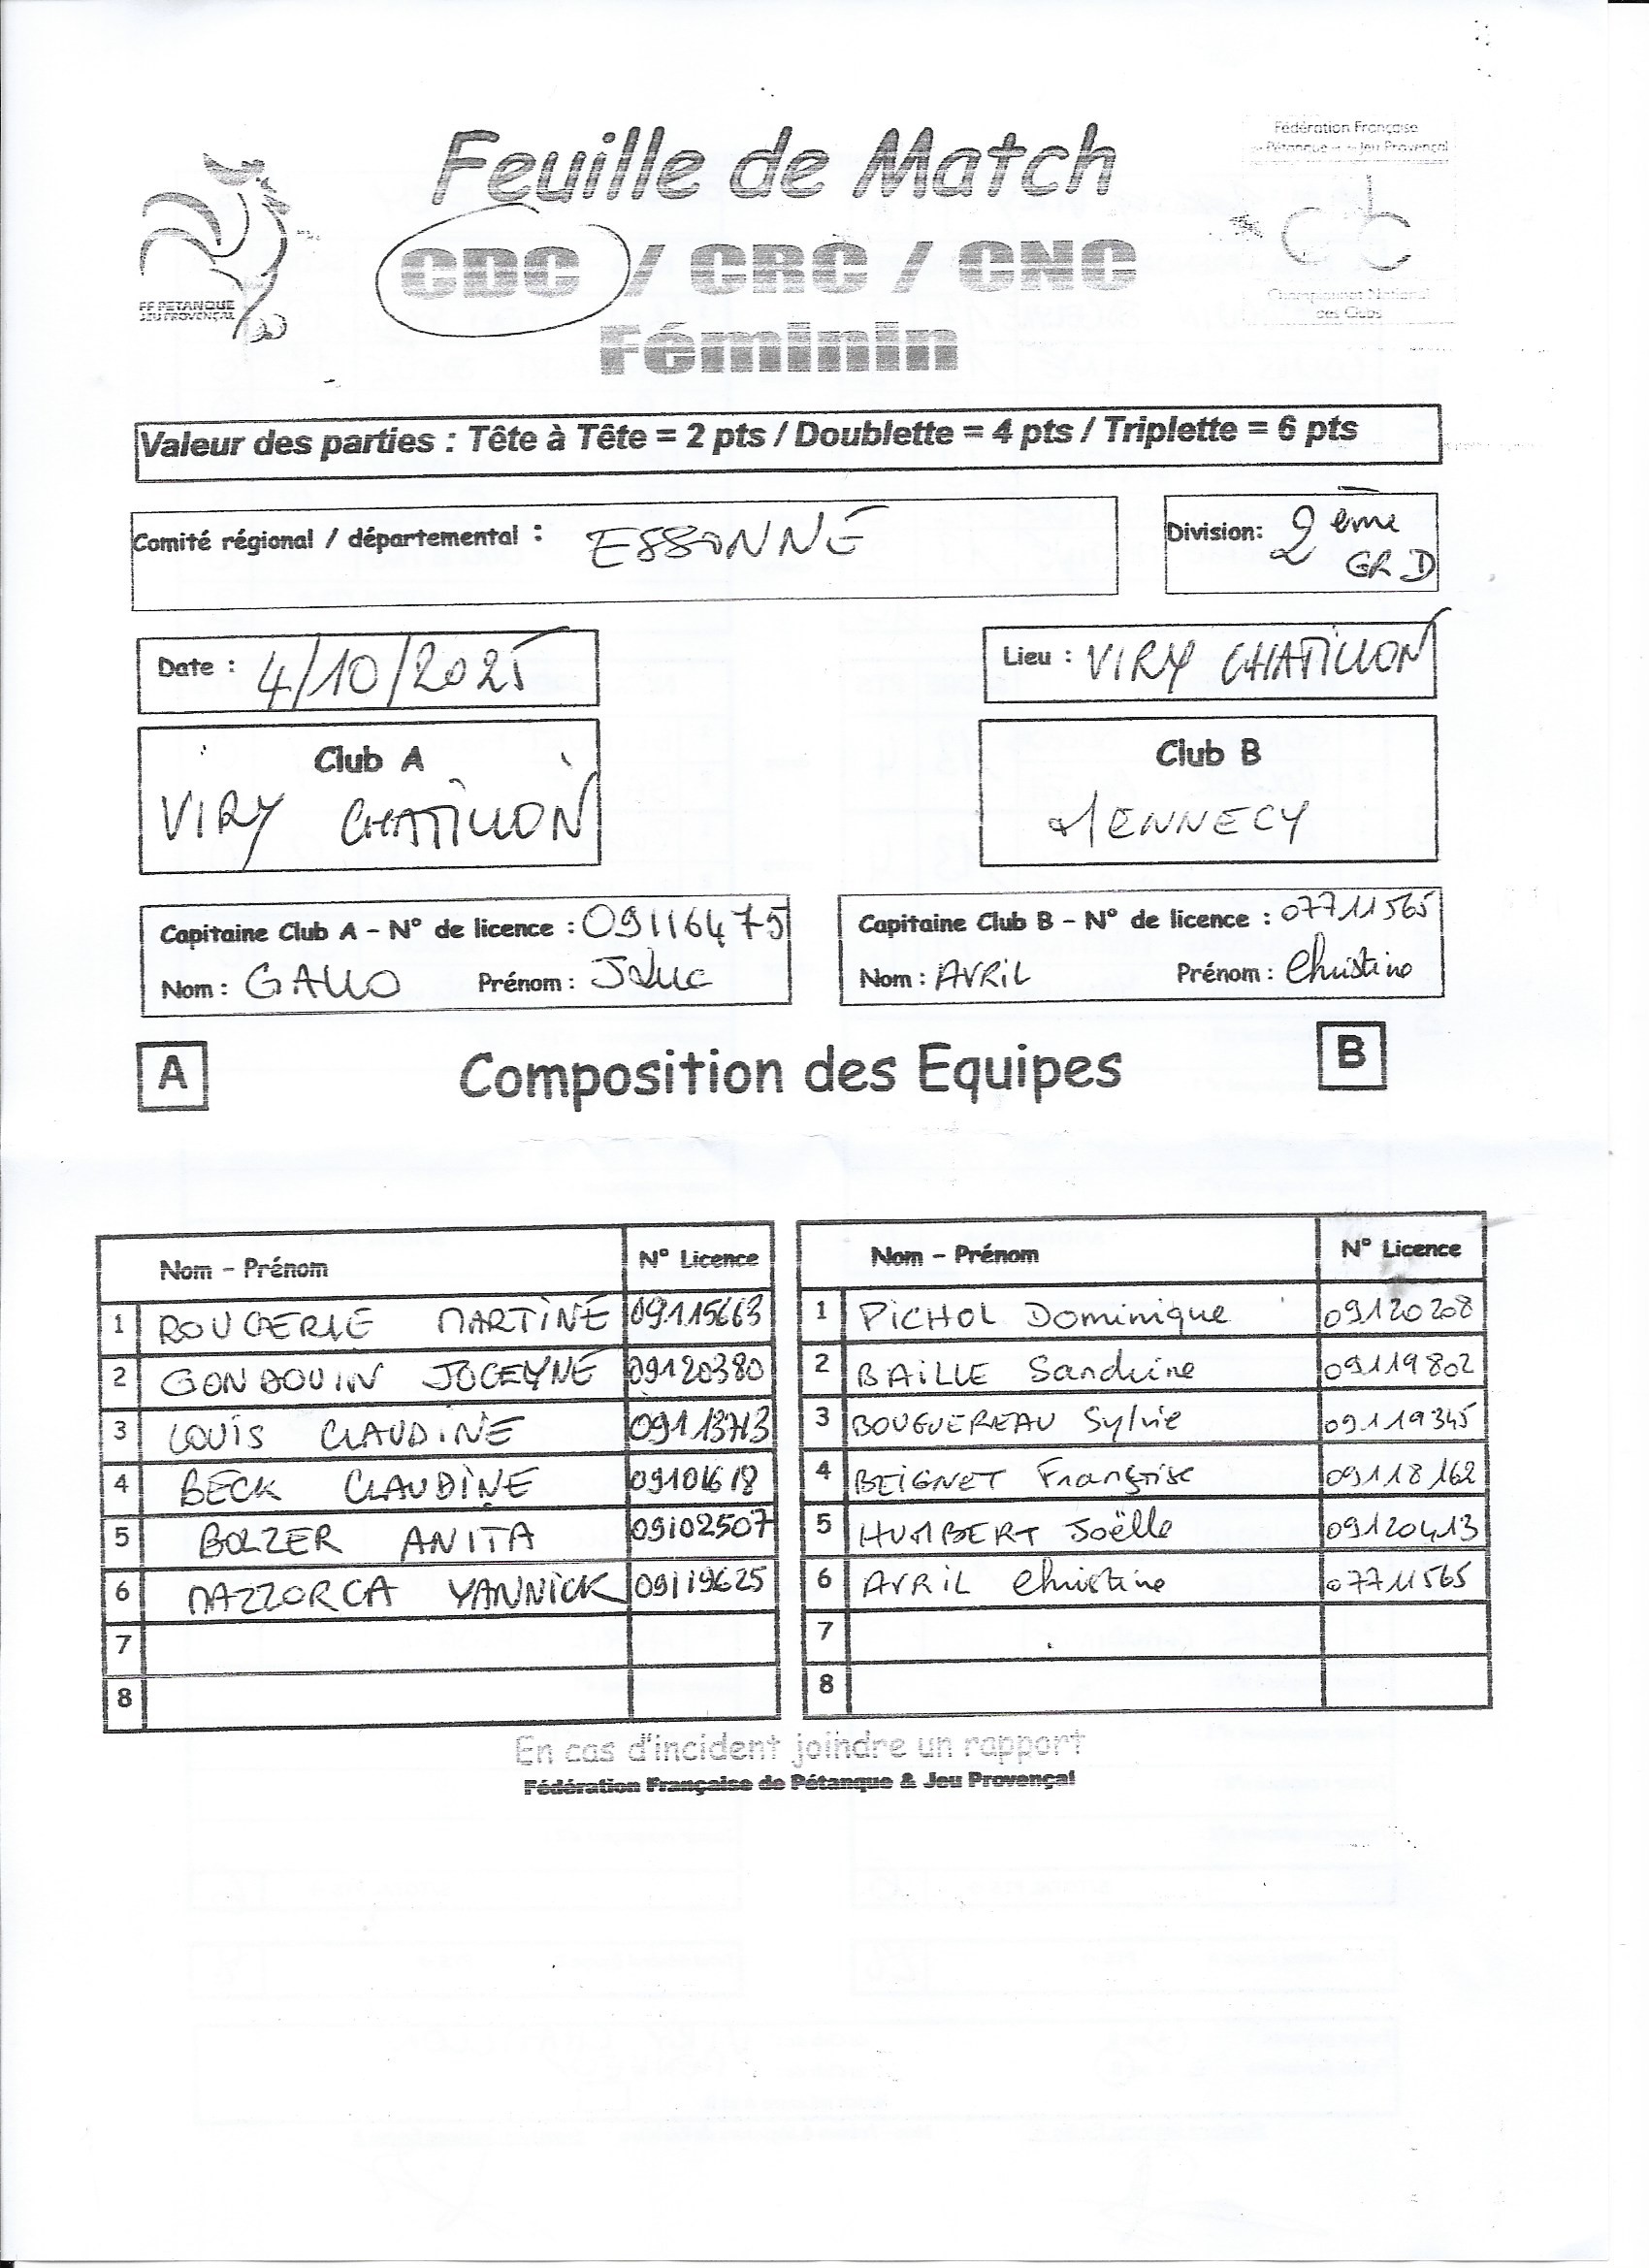 Fédération Française
de Pétanque et de Jeu Provençal
Feuille de Match
CDC / CRC / CNC
Féminin
FF PETANQUE
JEU PROVENÇAL
Championnat National
des Clubs
Valeur des parties : Tête à Tête = 2 pts / Doublette = 4 pts / Triplette = 6 pts
Comité régional / départemental : ESSONNE
Division: 2ème
GR D
Date : 4/10/2025
Lieu : VIRY CHATILLON
Club A
VIRY CHATILLON
Club B
MENNECY
Capitaine Club A - N° de licence : 09116475
Nom : GALLO Prénom : JLuc
Capitaine Club B - N° de licence : 07711565
Nom : AVRIL Prénom : Christine
A Composition des Equipes B
Nom - Prénom N° Licence Nom - Prénom N° Licence
1 ROUGERIE MARTINE 09115663 1 PICHOL Dominique 09120208
2 GONDOUIN JOCELYNE 09120380 2 BAILLE Sandrine 09119802
3 LOUIS CLAUDINE 09113713 3 BOUGUEREAU Sylvie 09119345
4 BECK CLAUDINE 09101618 4 BEIGNET Françoise 09118162
5 BOLZER ANITA 09102507 5 HUMBERT Joëlle 09120413
6 MAZZORCA YANNICK 09119625 6 AVRIL Christine 07711565
7 7
8 8
En cas d'incident joindre un rapport
Fédération Française de Pétanque & Jeu Provençal